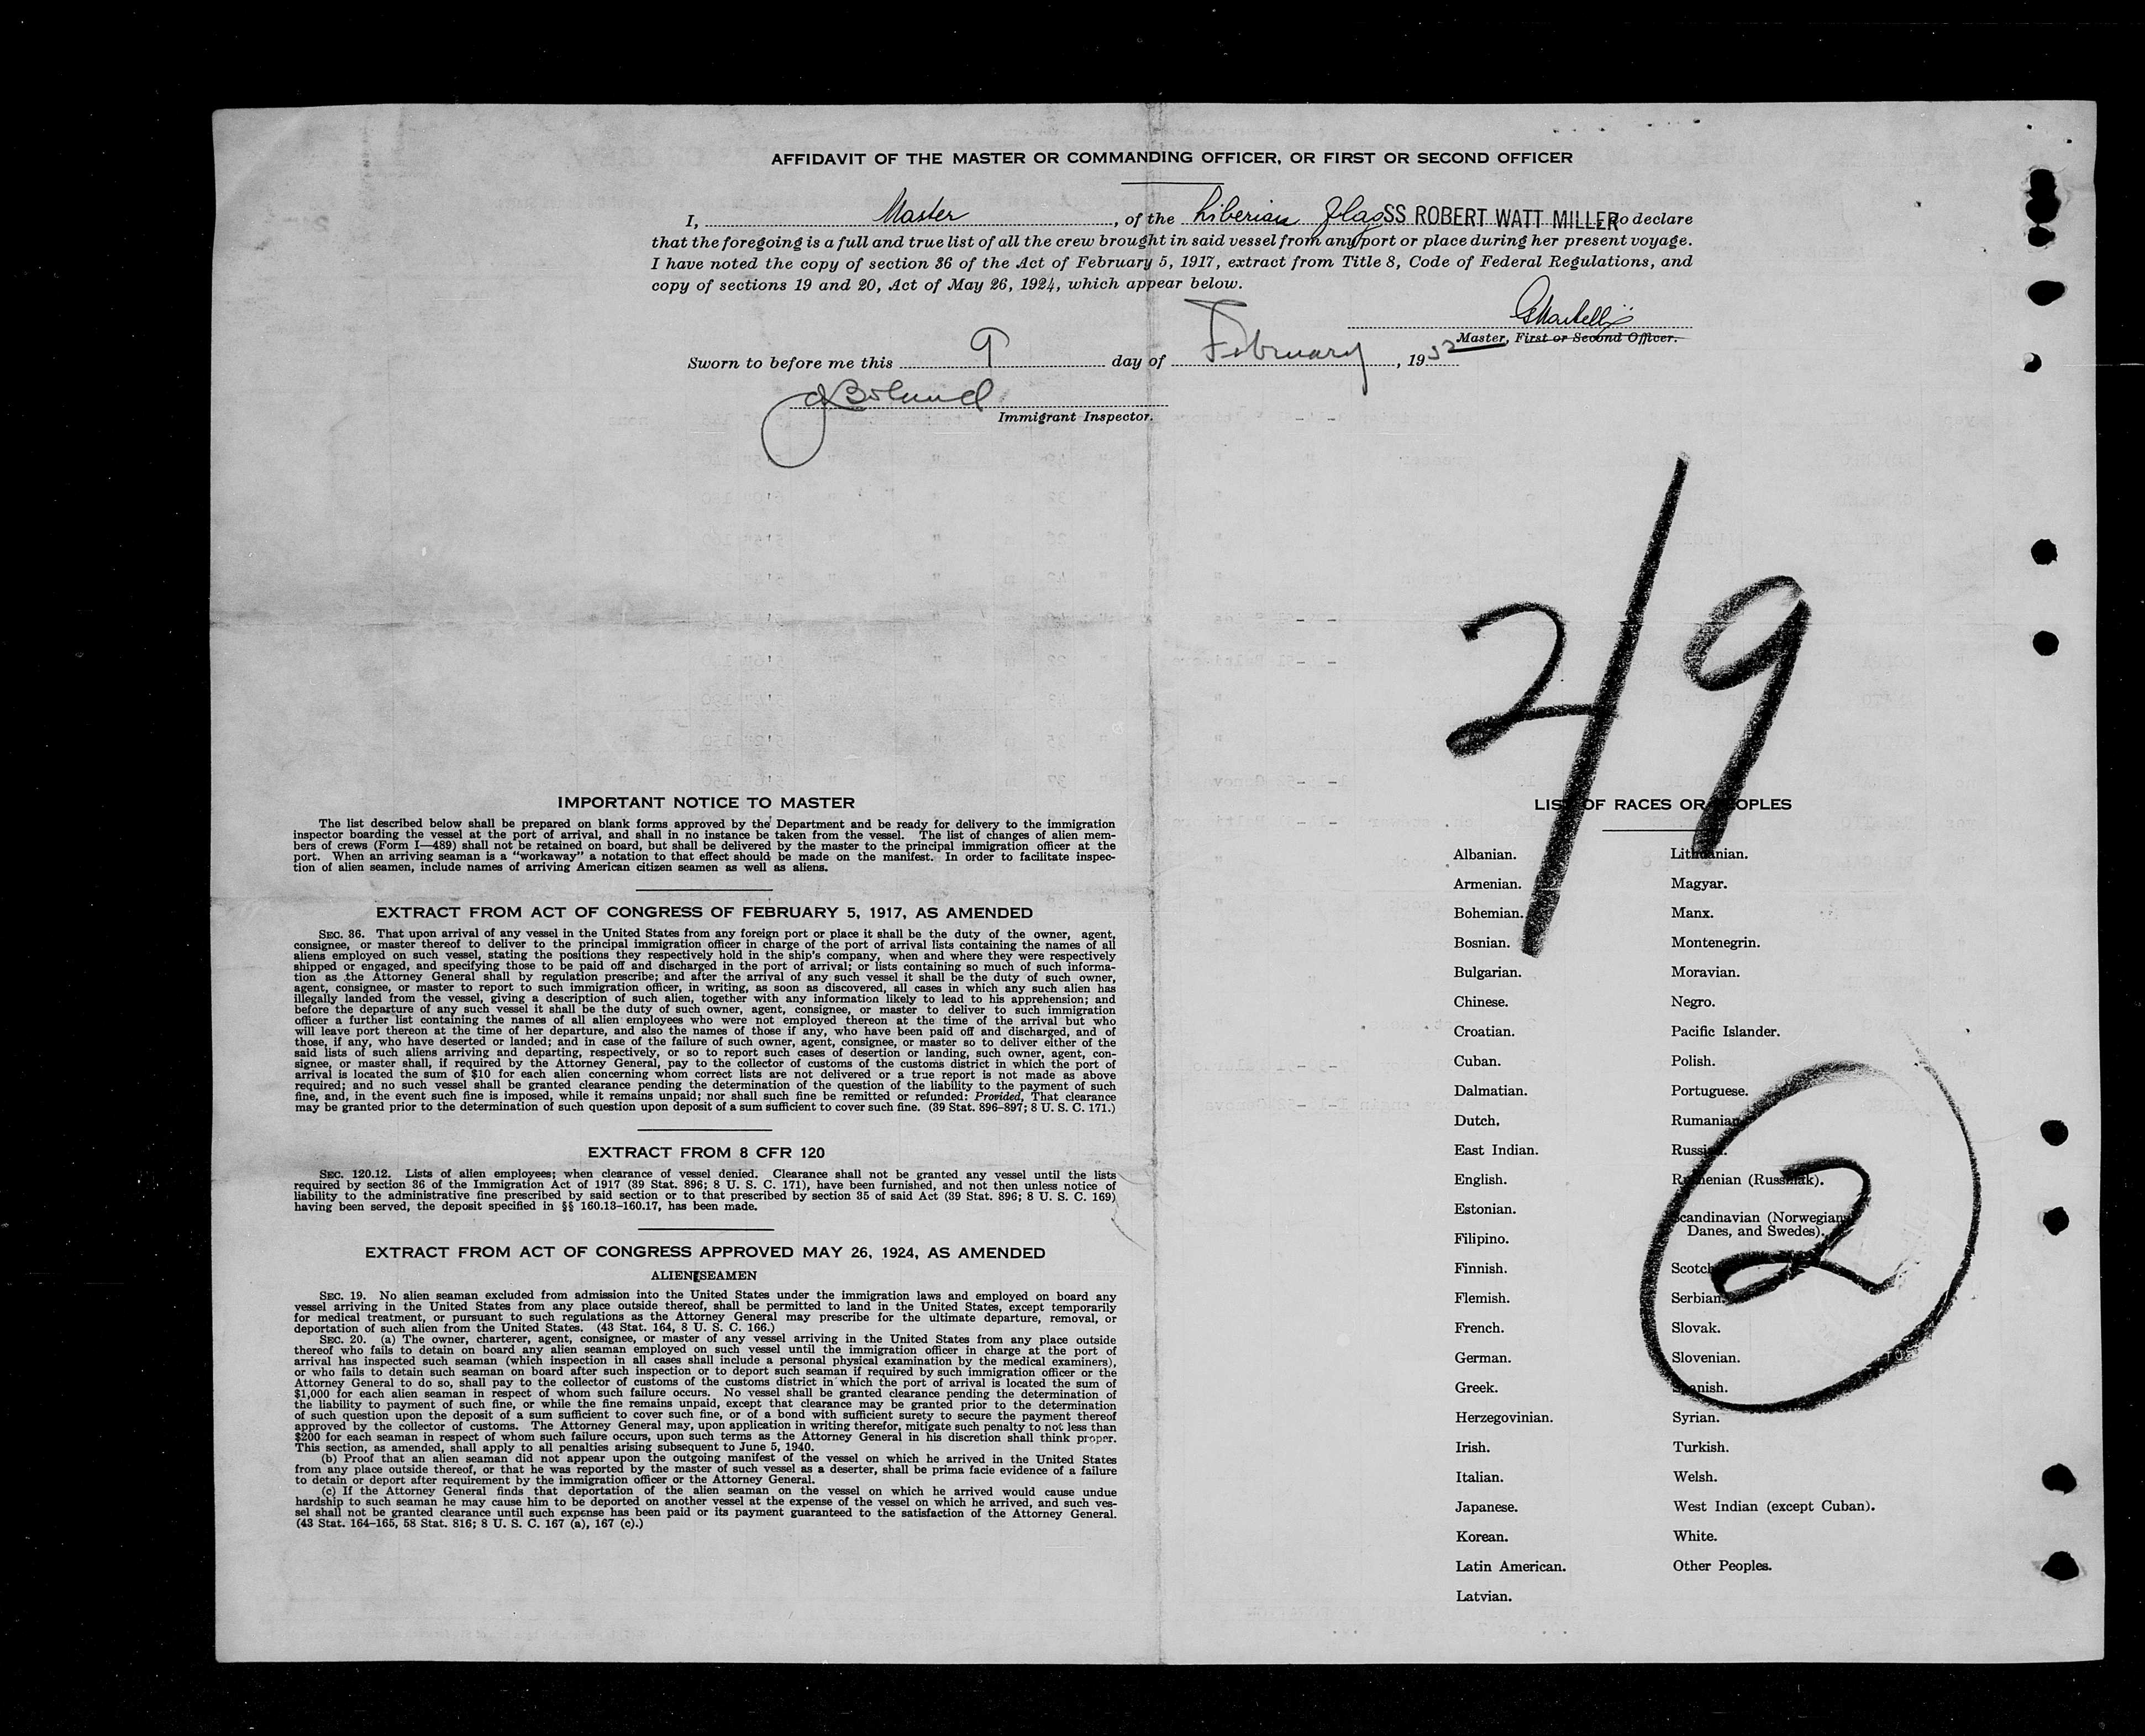 AFFIDAVIT OF THE MASTER OR COMMANDING OFFICER, OR FIRST OR SECOND OFFICER
I, Master, of the Liberian flag SS ROBERT WATT MILLER do declare
that the foregoing is a full and true list of all the crew brought in said vessel from any port or place during her present voyage.
I have noted the copy of section 36 of the Act of February 5, 1917, extract from Title 8, Code of Federal Regulations, and
copy of sections 19 and 20, Act of May 26, 1924, which appear below.
Master, First or Second Officer.
Sworn to before me this 9 day of February, 1952
Immigrant Inspector.
2/9
IMPORTANT NOTICE TO MASTER
The list described below shall be prepared on blank forms approved by the Department and be ready for delivery to the immigration
inspector boarding the vessel at the port of arrival, and shall in no instance be taken from the vessel. The list of changes of alien mem-
bers of crews (Form I—489) shall not be retained on board, but shall be delivered by the master to the principal immigration officer at the
port. When an arriving seaman is a "workaway" a notation to that effect should be made on the manifest. In order to facilitate inspec-
tion of alien seamen, include names of arriving American citizen seamen as well as aliens.
EXTRACT FROM ACT OF CONGRESS OF FEBRUARY 5, 1917, AS AMENDED
SEC. 36. That upon arrival of any vessel in the United States from any foreign port or place it shall be the duty of the owner, agent,
consignee, or master thereof to deliver to the principal immigration officer in charge of the port of arrival lists containing the names of all
aliens employed on such vessel, stating the positions they respectively hold in the ship's company, when and where they were respectively
shipped or engaged, and specifying those to be paid off and discharged in the port of arrival; or lists containing so much of such informa-
tion as the Attorney General shall by regulation prescribe; and after the arrival of any such vessel it shall be the duty of such owner,
agent, consignee, or master to report to such immigration officer, in writing, as soon as discovered, all cases in which any such alien has
illegally landed from the vessel, giving a description of such alien, together with any information likely to lead to his apprehension; and
before the departure of any such vessel it shall be the duty of such owner, agent, consignee, or master to deliver to such immigration
officer a further list containing the names of all alien employees who were not employed thereon at the time of the arrival but who
will leave port thereon at the time of her departure, and also the names of those if any, who have been paid off and discharged, and of
those, if any, who have deserted or landed; and in case of the failure of such owner, agent, consignee, or master so to deliver either of the
said lists of such aliens arriving and departing, respectively, or so to report such cases of desertion or landing, such owner, agent, con-
signee, or master shall, if required by the Attorney General, pay to the collector of customs of the customs district in which the port of
arrival is located the sum of $10 for each alien concerning whom correct lists are not delivered or a true report is not made as above
required; and no such vessel shall be granted clearance pending the determination of the question of the liability to the payment of such
fine, and, in the event such fine is imposed, while it remains unpaid; nor shall such fine be remitted or refunded: Provided, That clearance
may be granted prior to the determination of such question upon deposit of a sum sufficient to cover such fine. (39 Stat. 896–897; 8 U. S. C. 171.)
EXTRACT FROM 8 CFR 120
SEC. 120.12. Lists of alien employees; when clearance of vessel denied. Clearance shall not be granted any vessel until the lists
required by section 36 of the Immigration Act of 1917 (39 Stat. 896; 8 U. S. C. 171), have been furnished, and not then unless notice of
liability to the administrative fine prescribed by said section or to that prescribed by section 35 of said Act (39 Stat. 896; 8 U. S. C. 169)
having been served, the deposit specified in §§ 160.13–160.17, has been made.
EXTRACT FROM ACT OF CONGRESS APPROVED MAY 26, 1924, AS AMENDED
ALIEN SEAMEN
SEC. 19. No alien seaman excluded from admission into the United States under the immigration laws and employed on board any
vessel arriving in the United States from any place outside thereof, shall be permitted to land in the United States, except temporarily
for medical treatment, or pursuant to such regulations as the Attorney General may prescribe for the ultimate departure, removal, or
deportation of such alien from the United States. (43 Stat. 164, 8 U. S. C. 166.)
SEC. 20. (a) The owner, charterer, agent, consignee, or master of any vessel arriving in the United States from any place outside
thereof who fails to detain on board any alien seaman employed on such vessel until the immigration officer in charge at the port of
arrival has inspected such seaman (which inspection in all cases shall include a personal physical examination by the medical examiners),
or who fails to detain such seaman on board after such inspection or to deport such seaman if required by such immigration officer or the
Attorney General to do so, shall pay to the collector of customs of the customs district in which the port of arrival is located the sum of
$1,000 for each alien seaman in respect of whom such failure occurs. No vessel shall be granted clearance pending the determination of
the liability to payment of such fine, or while the fine remains unpaid, except that clearance may be granted prior to the determination
of such question upon the deposit of a sum sufficient to cover such fine, or of a bond with sufficient surety to secure the payment thereof
approved by the collector of customs. The Attorney General may, upon application in writing therefor, mitigate such penalty to not less than
$200 for each seaman in respect of whom such failure occurs, upon such terms as the Attorney General in his discretion shall think proper.
This section, as amended, shall apply to all penalties arising subsequent to June 5, 1940.
(b) Proof that an alien seaman did not appear upon the outgoing manifest of the vessel on which he arrived in the United States
from any place outside thereof, or that he was reported by the master of such vessel as a deserter, shall be prima facie evidence of a failure
to detain or deport after requirement by the immigration officer or the Attorney General.
(c) If the Attorney General finds that deportation of the alien seaman on the vessel on which he arrived would cause undue
hardship to such seaman he may cause him to be deported on another vessel at the expense of the vessel on which he arrived, and such ves-
sel shall not be granted clearance until such expense has been paid or its payment guaranteed to the satisfaction of the Attorney General.
(43 Stat. 164–165, 58 Stat. 816; 8 U. S. C. 167 (a), 167 (c).)
LIST OF RACES OR PEOPLES
Albanian.
Armenian.
Bohemian.
Bosnian.
Bulgarian.
Chinese.
Croatian.
Cuban.
Dalmatian.
Dutch.
East Indian.
English.
Estonian.
Filipino.
Finnish.
Flemish.
French.
German.
Greek.
Herzegovinian.
Irish.
Italian.
Japanese.
Korean.
Latin American.
Latvian.
Lithuanian.
Magyar.
Manx.
Montenegrin.
Moravian.
Negro.
Pacific Islander.
Polish.
Portuguese.
Rumanian.
Russian.
Ruthenian (Russniak).
Scandinavian (Norwegians,
Danes, and Swedes).
Scotch.
Serbian.
Slovak.
Slovenian.
Spanish.
Syrian.
Turkish.
Welsh.
West Indian (except Cuban).
White.
Other Peoples.
2